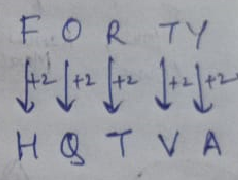 F O R T Y
+2 +2 +2 +2 +2
H Q T V A